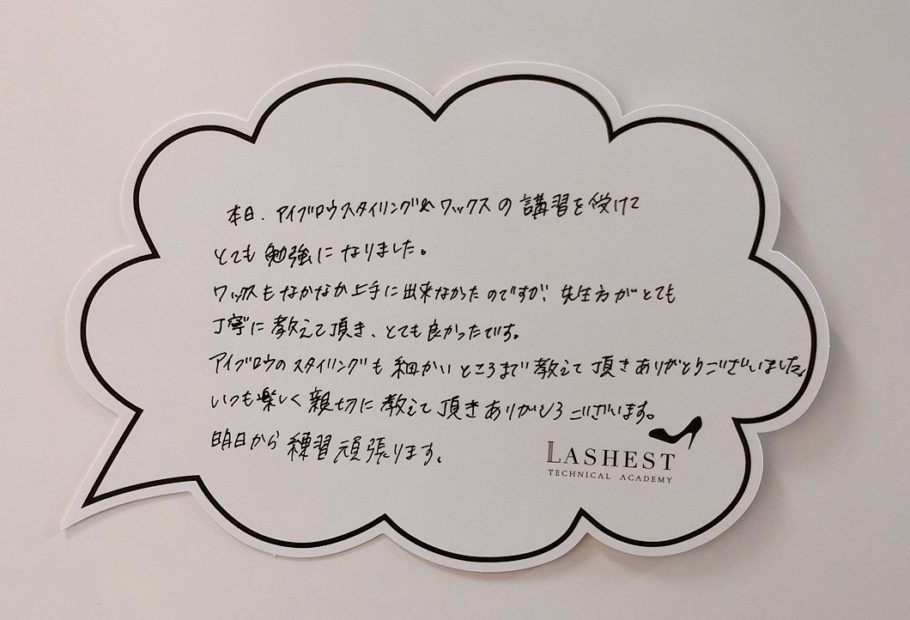 本日、アイブロウスタイリング&ワックスの講習を受けて
とても勉強になりました。
ワックスもなかなか上手に出来なかったのですが、先生方がとても
丁寧に教えて頂き、とても良かったです。
アイブロウのスタイリングも細かいところまで教えて頂きありがとうございました。
いつも楽しく親切に教えて頂きありがとうございます。
明日から練習頑張ります。
LASHEST
TECHNICAL ACADEMY